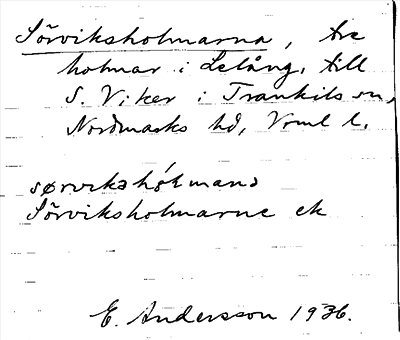 Sörviksholmarna, tre
holmar i Lelång, till
S. Viker i Trankils sn,
Nordmarks hd, Vrml l.
sørvikshólmana
Sörviksholmarne ek
E. Andersson 1936.